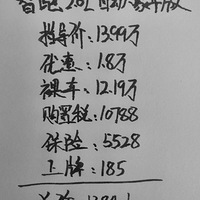 智跑 2.0L 自动豪华版
指导价：13.99万
优惠：1.8万
裸车：12.19万
购置税：10788
保险：5528
上牌：185